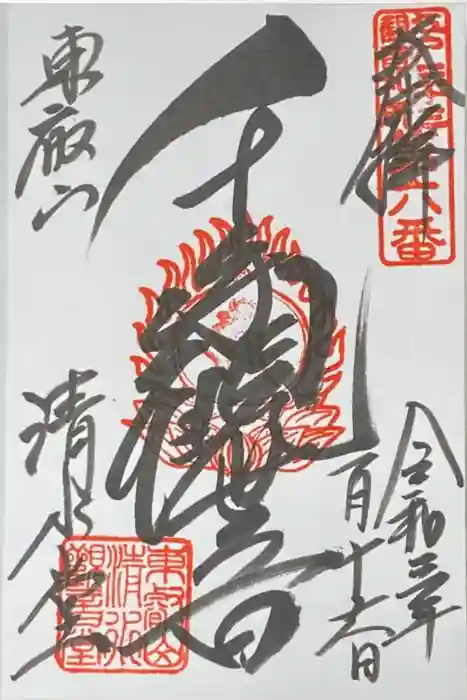 奉拝
六番
令和三年
月十六日
千手
観世音
東叡山
清水堂
東叡山
清水
観音堂